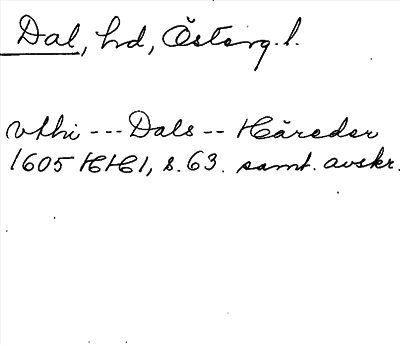 Dal, hd, Österg. l.
vthi --- Dals -- Häreder
1605 HH1, s. 63. samt. avskr.